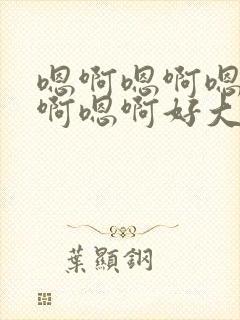 嗯啊嗯啊嗯
啊嗯啊好大
葉顯鋼